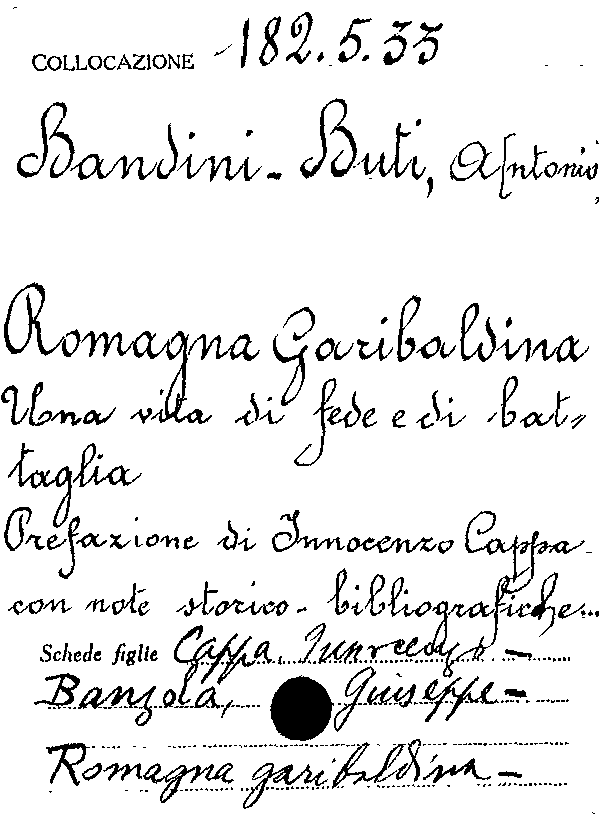 COLLOCAZIONE 182.5.33
Bandini-Buti, Antonio,
Romagna Garibaldina
Una vita di fede e di bat-
taglia
Prefazione di Innocenzo Cappa
con note storico-bibliografiche...
Schede figlie Cappa, Innocenzo -
Banzola, Giuseppe -
Romagna garibaldina -